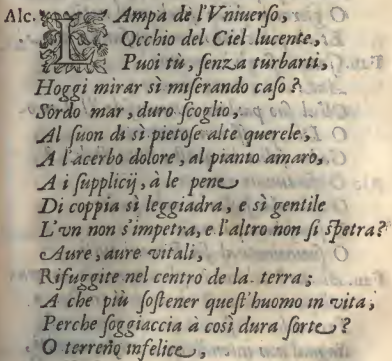 Alc. LAmpa de l'Vniuerſo,
Occhio del Ciel lucente,
Puoi tù, ſenza turbarti,
Hoggi mirar sì miſerando caſo?
Sordo mar, duro ſcoglio,
Al ſuon di sì pietoſe alte querele,
A l'acerbo dolore, al pianto amaro,
A i ſupplicij, à le pene
Di coppia sì leggiadra, e sì gentile
L'vn non s'impetra, e l'altro non ſi ſpetra?
Aure, aure vitali,
Rifuggite nel centro de la terra;
A che più ſoſtener queſt'huomo in vita,
Perche ſoggiaccia à così dura ſorte?
O terreno infelice,